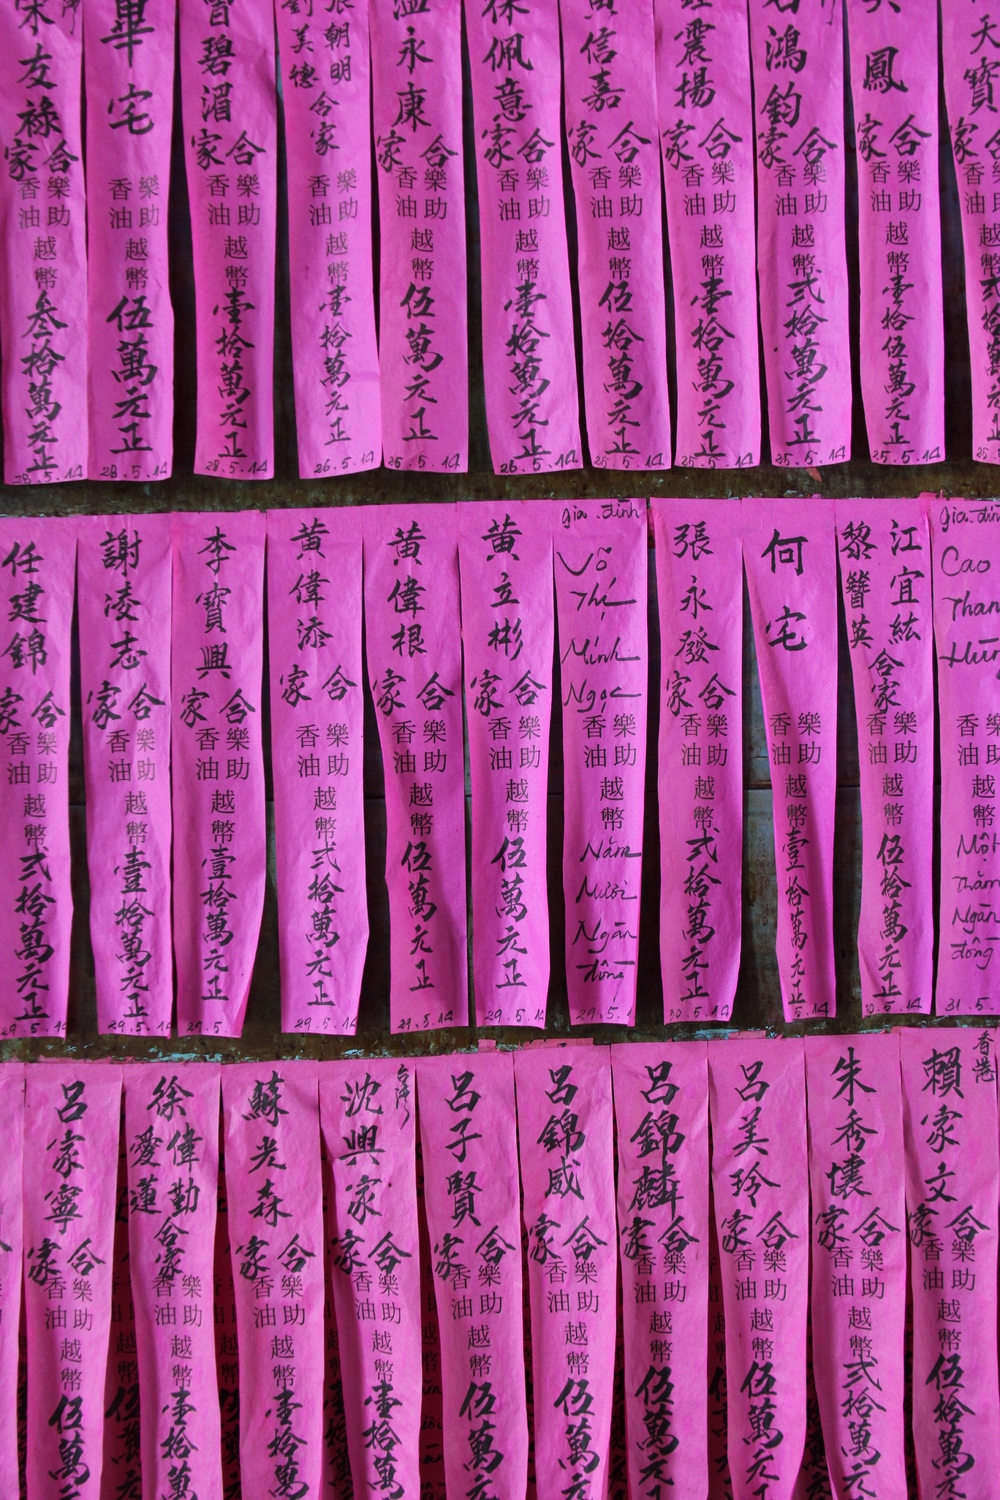 友祿
合家
樂助
香油
越幣
叁拾萬元正
28.5.14
畢宅
樂助
香油
越幣
伍萬元正
28.5.14
碧湄
合家
樂助
香油
越幣
壹拾萬元正
28.5.14
張朝明
劉美德
合家
樂助
香油
越幣
壹拾萬元正
26.5.14
溫永康
合家
樂助
香油
越幣
伍萬元正
25.5.14
佩意
合家
樂助
香油
越幣
壹拾萬元正
26.5.14
黃信嘉
合家
樂助
香油
越幣
伍拾萬元正
25.5.14
震揚
合家
樂助
香油
越幣
壹拾萬元正
25.5.14
鴻鈞
合家
樂助
香油
越幣
弍拾萬元正
25.5.14
鳳
合家
樂助
香油
越幣
壹拾伍萬元正
25.5.14
天寶
合家
樂助
香油
越幣
弍拾萬元正
任建錦
合家
樂助
香油
越幣
弍拾萬元正
29.5.14
謝凌志
合家
樂助
香油
越幣
壹拾萬元正
29.5.14
李寶興
合家
樂助
香油
越幣
壹拾萬元正
29.5.
黃偉添
合家
樂助
香油
越幣
弍拾萬元正
29.5.14
黃偉根
合家
樂助
香油
越幣
伍萬元正
29.5.14
黃立彬
合家
樂助
香油
越幣
伍萬元正
29.5.14
gia đình
Võ
Thị
Minh
Ngọc
樂助
香油
越幣
Năm
Mươi
Ngàn
đồng
29.5.1
張永發
合家
樂助
香油
越幣
弍拾萬元正
30.5.14
何宅
樂助
香油
越幣
壹拾萬元正
5.14
江宜紘
黎簪英
合家
樂助
香油
越幣
伍拾萬元正
30.5.14
gia đình
Cao
Than
Hùn
樂助
香油
越幣
Một
Trăm
Ngàn
đồng
31.5.
呂家寧
合家
樂助
香油
越幣
伍萬
徐偉勤
愛蓮
合家
樂助
香油
越幣
壹拾萬
蘇光森
合家
樂助
香油
越幣
壹拾萬
台灣
沈興家
合家
樂助
香油
越幣
壹拾萬
呂子賢
合家
樂助
香油
越幣
伍萬元
呂錦威
合家
樂助
香油
越幣
伍萬元
呂錦麟
合家
樂助
香油
越幣
伍萬元
呂美玲
合家
樂助
香油
越幣
伍萬元
朱秀懷
合家
樂助
香油
越幣
弍拾萬元
香港
賴家文
合家
樂助
香油
越幣
伍拾萬元